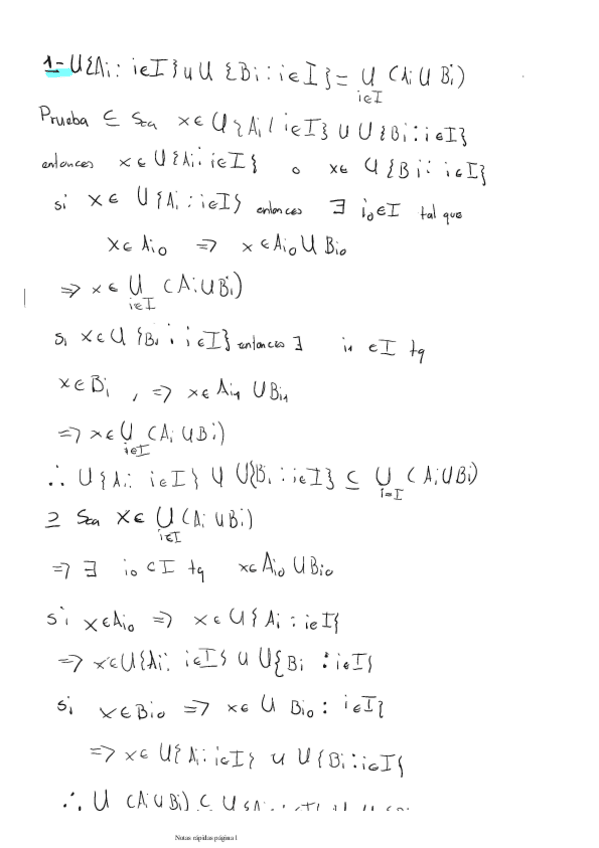 1- ∪{Ai : i∈I} ∪ ∪{Bi : i∈I} = ∪ (Ai ∪ Bi)
i∈I
Prueba ⊆ Sea x∈∪{Ai / i∈I} ∪ ∪{Bi : i∈I}
entonces x∈∪{Ai : i∈I} o x∈ ∪{Bi : i∈I}
si x∈ ∪{Ai : i∈I} entonces ∃ i₀∈I tal que
x∈ Ai₀ => x∈Ai₀ ∪ Bi₀
=> x∈ ∪ (Ai ∪ Bi)
i∈I
si x∈∪{Bi : i∈I} entonces ∃ i₁ ∈I tq
x∈Bi, => x∈Ai₁ ∪ Bi₁
=> x∈∪ (Ai ∪ Bi)
i∈I
∴ ∪{Ai : i∈I} ∪ ∪{Bi : i∈I} ⊆ ∪ (Ai ∪ Bi)
i=I
⊇ Sea x∈ ∪ (Ai ∪ Bi)
i∈I
=> ∃ i₀ ∈I tq x∈Ai₀ ∪ Bi₀
si x∈Ai₀ => x∈∪{Ai : i∈I}
=> x∈∪{Ai : i∈I} ∪ ∪{Bi : i∈I}
si x∈Bi₀ => x∈ ∪ Bi₀ : i∈I}
=> x∈ ∪{Ai : i∈I} ∪ ∪{Bi : i∈I}
∴ ∪ (Ai ∪ Bi) ⊂
Notas rápidas página 1